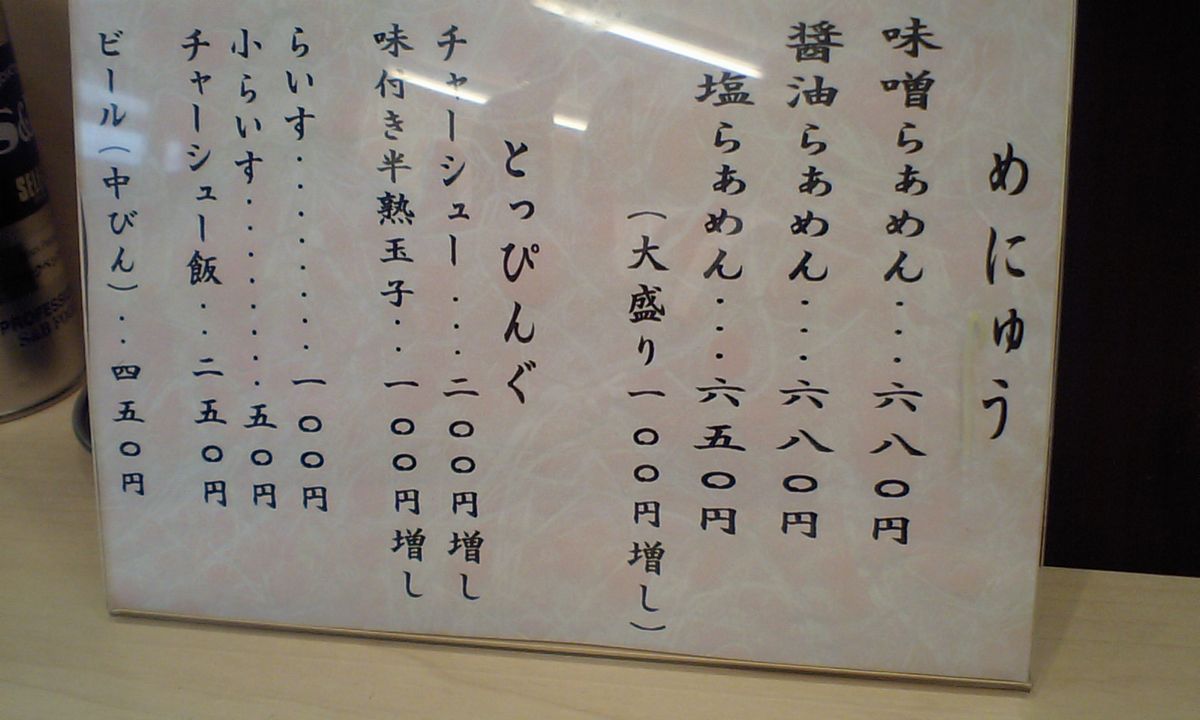 めにゅう
味噌らぁめん・・・六八〇円
醤油らぁめん・・・六八〇円
塩らぁめん・・・六五〇円
（大盛り一〇〇円増し）
とっぴんぐ
チャーシュー・・・二〇〇円増し
味付き半熟玉子・・一〇〇円増し
らいす・・・・・・・・一〇〇円
小らいす・・・・・・・・五〇円
チャーシュー飯・・二五〇円
ビール（中びん）・・四五〇円
PROFESS
S&B FOO